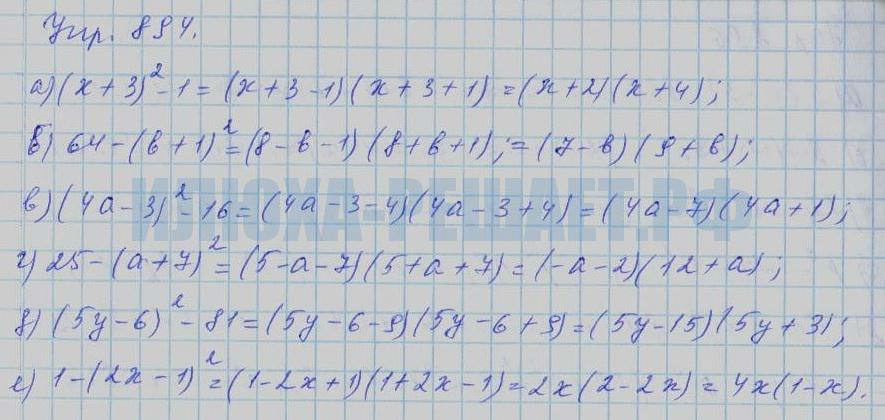 Упр. 894.
а) (x + 3)² - 1 = (x + 3 - 1)(x + 3 + 1) = (x + 2)(x + 4);
б) 64 - (в + 1)² = (8 - в - 1)(8 + в + 1); = (7 - в)(9 + в);
в) (4a - 3)² - 16 = (4a - 3 - 4)(4a - 3 + 4) = (4a - 7)(4a + 1);
ИЛЮХА-РЕШАЕТ.РФ
г) 25 - (a + 7)² = (5 - a - 7)(5 + a + 7) = (-a - 2)(12 + a);
д) (5y - 6)² - 81 = (5y - 6 - 9)(5y - 6 + 9) = (5y - 15)(5y + 3);
е) 1 - (2x - 1)² = (1 - 2x + 1)(1 + 2x - 1) = 2x(2 - 2x) = 4x(1 - x).